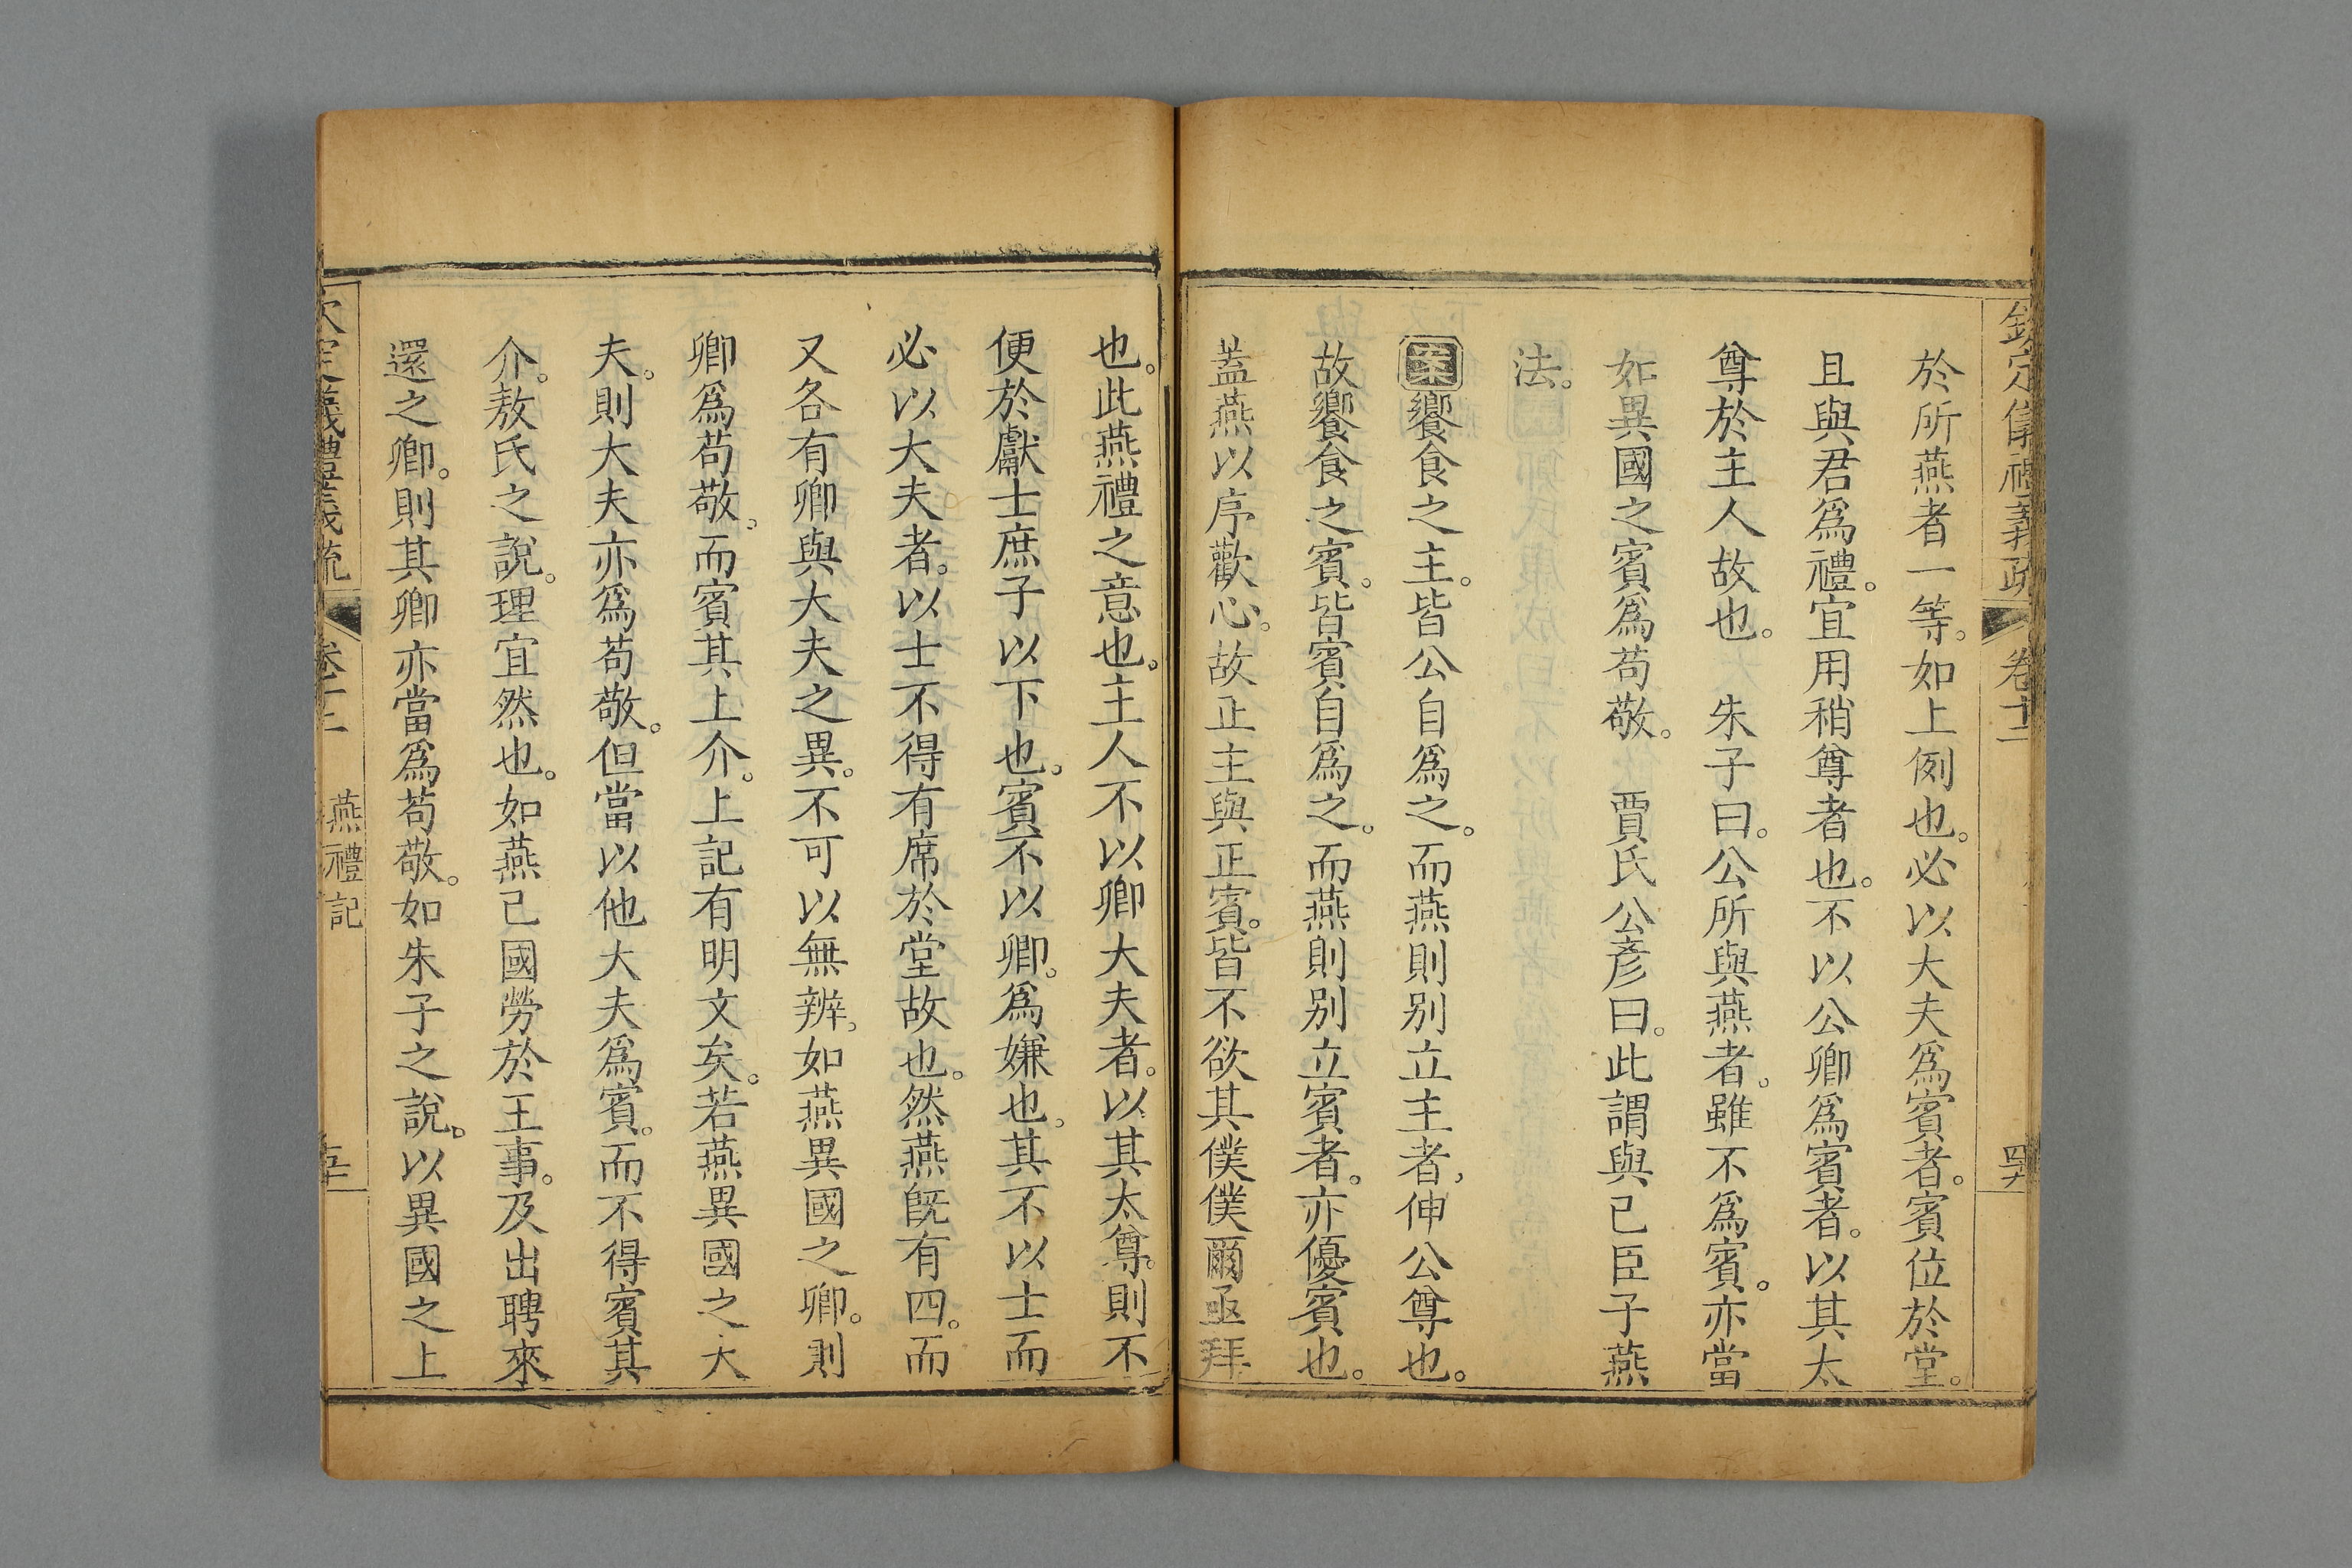 欽定儀禮義疏 卷十二 四九
於所燕者一等。如上例也。必以大夫爲賓者。賓位於堂。
且與君爲禮。宜用稍尊者也。不以公卿爲賓者。以其太
尊於主人故也。 朱子曰。公所與燕者。雖不爲賓。亦當
如異國之賓爲苟敬。 賈氏公彥曰。此謂與己臣子燕
法。
案饗食之主。皆公自爲之。而燕則別立主者,伸公尊也。
故饗食之賓。皆賓自爲之。而燕則別立賓者。亦優賓也。
蓋燕以序歡心。故正主與正賓。皆不欲其僕僕爾亟拜
也。此燕禮之意也。主人不以卿大夫者。以其太尊。則不
便於獻士庶子以下也。賓不以卿。爲嫌也。其不以士而
必以大夫者。以士不得有席於堂故也。然燕旣有四。而
又各有卿與大夫之異。不可以無辨。如燕異國之卿。則
卿爲苟敬。而賓其上介。上記有明文矣。若燕異國之大
夫。則大夫亦爲苟敬。但當以他大夫爲賓。而不得賓其
介。敖氏之說。理宜然也。如燕己國勞於王事。及出聘來
還之卿。則其卿亦當爲苟敬。如朱子之說。以異國之上
欽定儀禮義疏 卷十二 燕禮記 五十